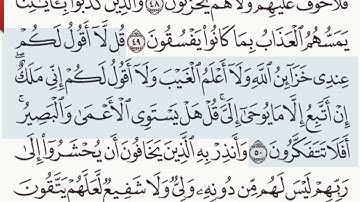 فَلَا خَوْفٌ عَلَيْهِمْ وَلَا هُمْ يَحْزَنُونَ ٤٨ وَالَّذِينَ كَذَّبُوا بِـَٔايَـٰتِنَا
يَمَسُّهُمُ الْعَذَابُ بِمَا كَانُوا يَفْسُقُونَ ٤٩ قُل لَّا أَقُولُ لَكُمْ
عِندِى خَزَآئِنُ اللَّهِ وَلَا أَعْلَمُ الْغَيْبَ وَلَا أَقُولُ لَكُمْ إِنِّى مَلَكٌ ۖ
إِنْ أَتَّبِعُ إِلَّا مَا يُوحَىٰ إِلَىَّ ۚ قُلْ هَلْ يَسْتَوِى الْأَعْمَىٰ وَالْبَصِيرُ ۚ
أَفَلَا تَتَفَكَّرُونَ ٥٠ وَأَنذِرْ بِهِ الَّذِينَ يَخَافُونَ أَن يُحْشَرُوا إِلَىٰ
رَبِّهِمْ ۙ لَيْسَ لَهُم مِّن دُونِهِۦ وَلِىٌّ وَلَا شَفِيعٌ لَّعَلَّهُمْ يَتَّقُونَ